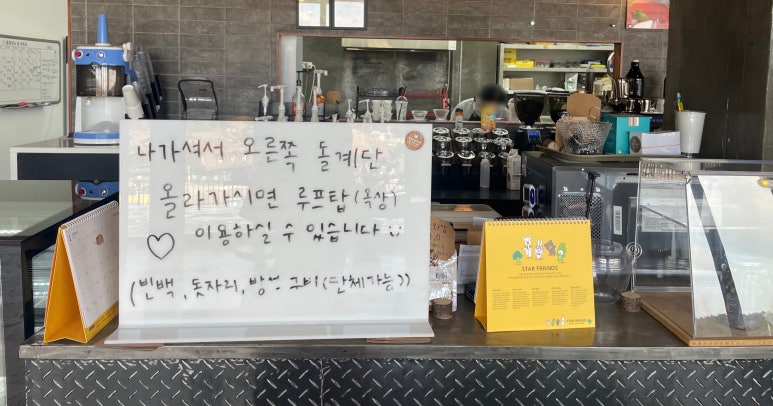 나가셔서 오른쪽 돌계단
올라가시면 루프탑(옥상)
이용하실 수 있습니다
(빈백, 돗자리, 구비(단체가능))
STAR FRIENDS